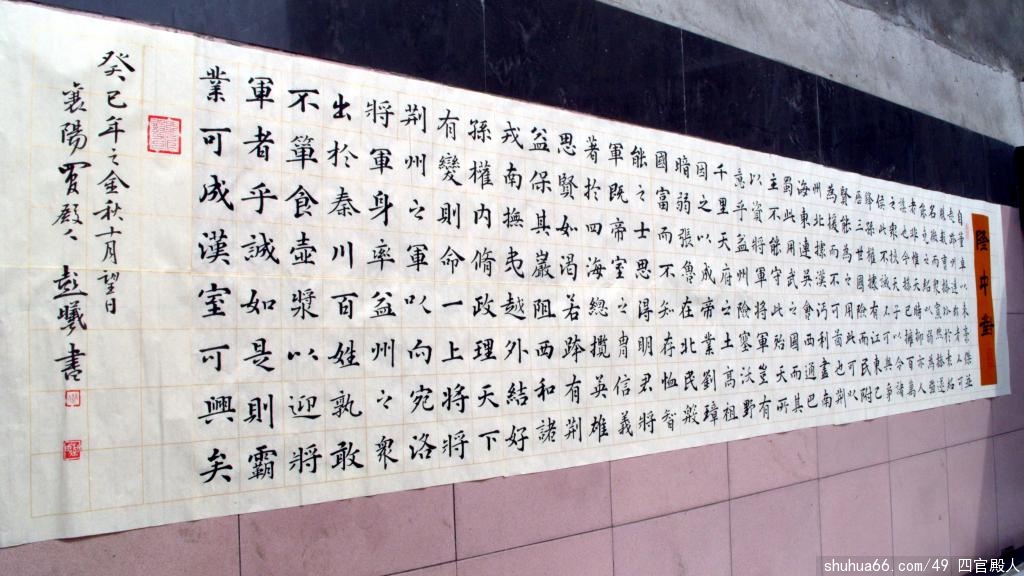 隆中對
自董卓以來豪傑並
起跨州連郡者不可
勝數曹操比於袁紹則
名微而衆寡然操遂
能克紹以弱為強
者非惟天時抑亦人
謀也今操已擁百萬
之衆挾天子以令諸
侯此誠不可與爭
鋒孫權據有江東已
歷三世國險而民附
賢能為之用此可以
為援而不可圖也荊
州北據漢沔利盡南
海東連吳會西通巴
蜀此用武之國而其
主不能守此殆天所
以資將軍將軍豈有
意乎益州險塞沃野
千里天府之土高祖
因之以成帝業劉璋
暗弱張魯在北民殷
國富而不知存恤智
能之士思得明君將
軍既帝室之胄信義
著於四海總攬英雄
思賢如渴若跨有荊
益保其巖阻西和諸
戎南撫夷越外結好
孫權內脩政理天下
有變則命一上將將
荊州之軍以向宛洛
將軍身率益州之衆
出於秦川百姓孰敢
不簞食壺漿以迎將
軍者乎誠如是則霸
業可成漢室可興矣
癸巳年之金秋十月望日
襄陽
書
shuhua66.com/49 四官殿人